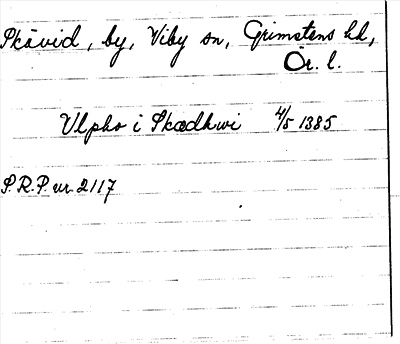 Skävid, by, Viby sn, Grimstens hd,
Ör. l.
Vlpho i Skædhwi 4/5 1385
S.R.P. nr. 2117